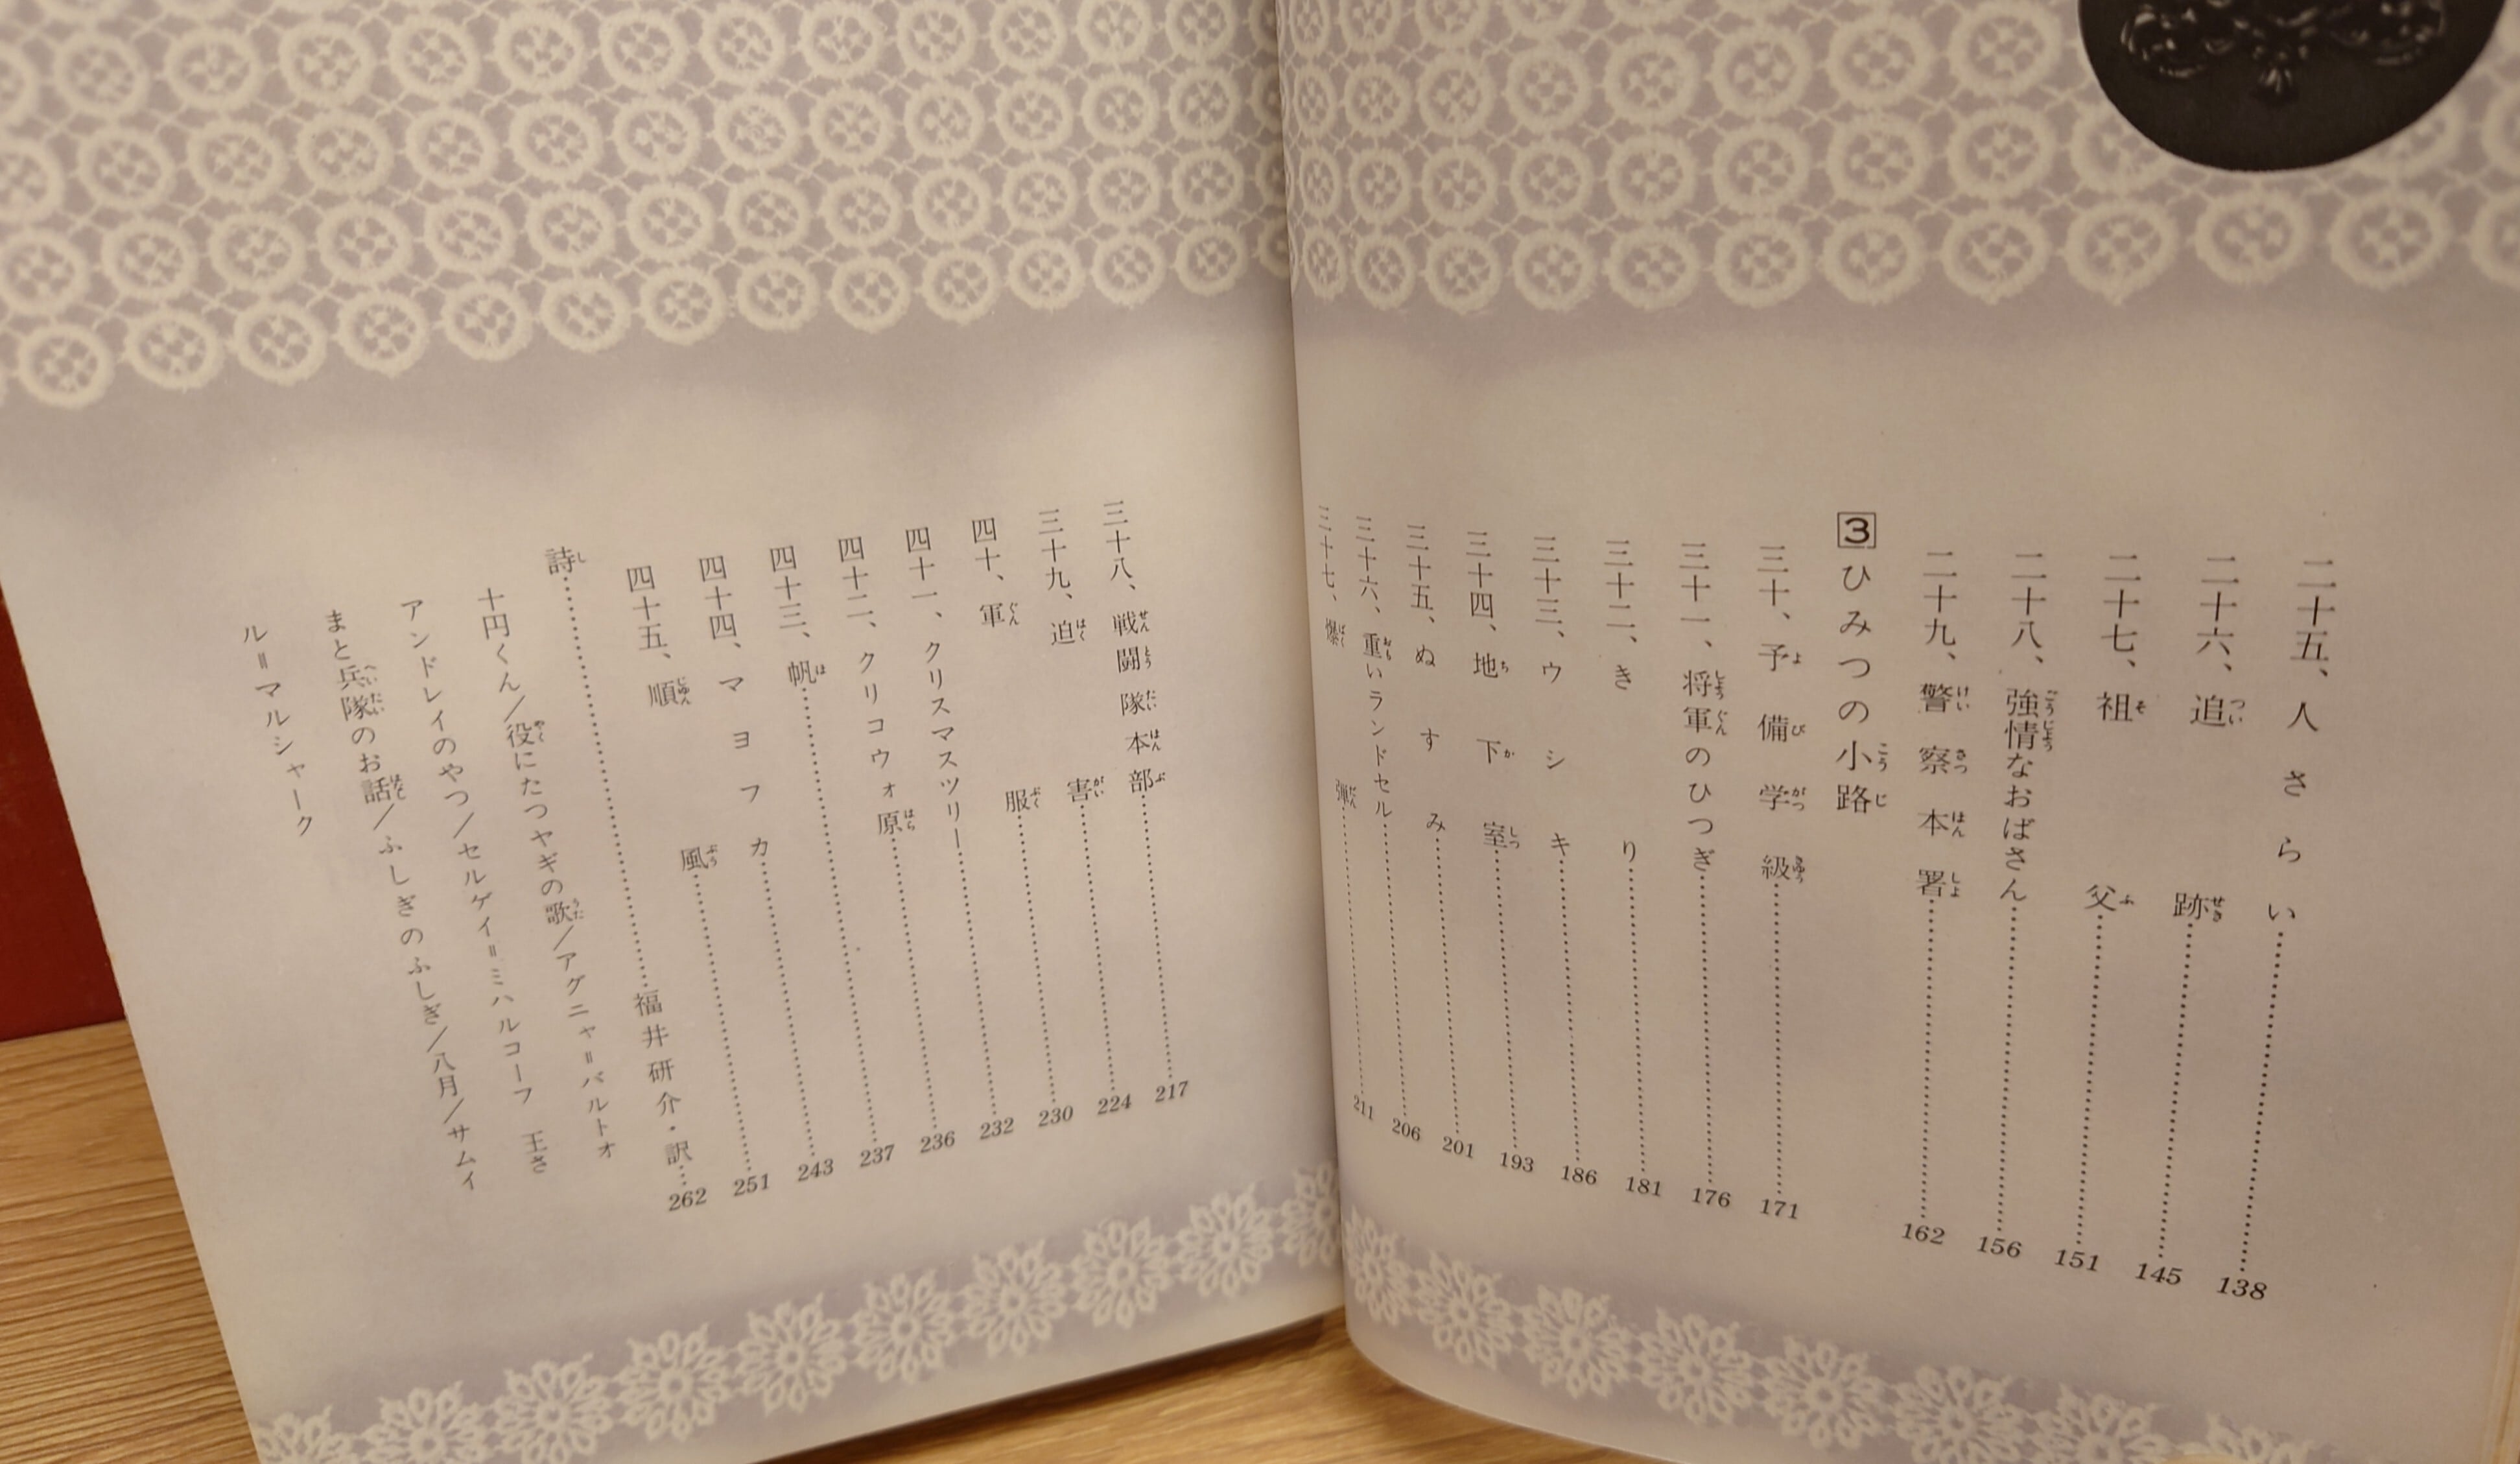 二十五、人さらい……138
二十六、追跡……145
二十七、祖父……151
二十八、強情なおばさん……156
二十九、警察本署……162
3 ひみつの小路
三十、予備学級……171
三十一、将軍のひつぎ……176
三十二、きり……181
三十三、ウシキ……186
三十四、地下室……193
三十五、ぬすみ……201
三十六、重いランドセル……206
三十七、爆弾……211
三十八、戦闘隊本部……217
三十九、迫害……224
四十、軍服……230
四十一、クリスマスツリー……232
四十二、クリコウォ原……236
四十三、帆……237
四十四、マヨフカ……243
四十五、順風……251
詩……福井研介・訳……262
十円くん／役にたつヤギの歌／アグニャ＝バルトオ
アンドレイのやつ／セルゲイ＝ミハルコーフ 王さ
まと兵隊のお話／ふしぎのふしぎ／八月／サムイ
ル＝マルシャーク